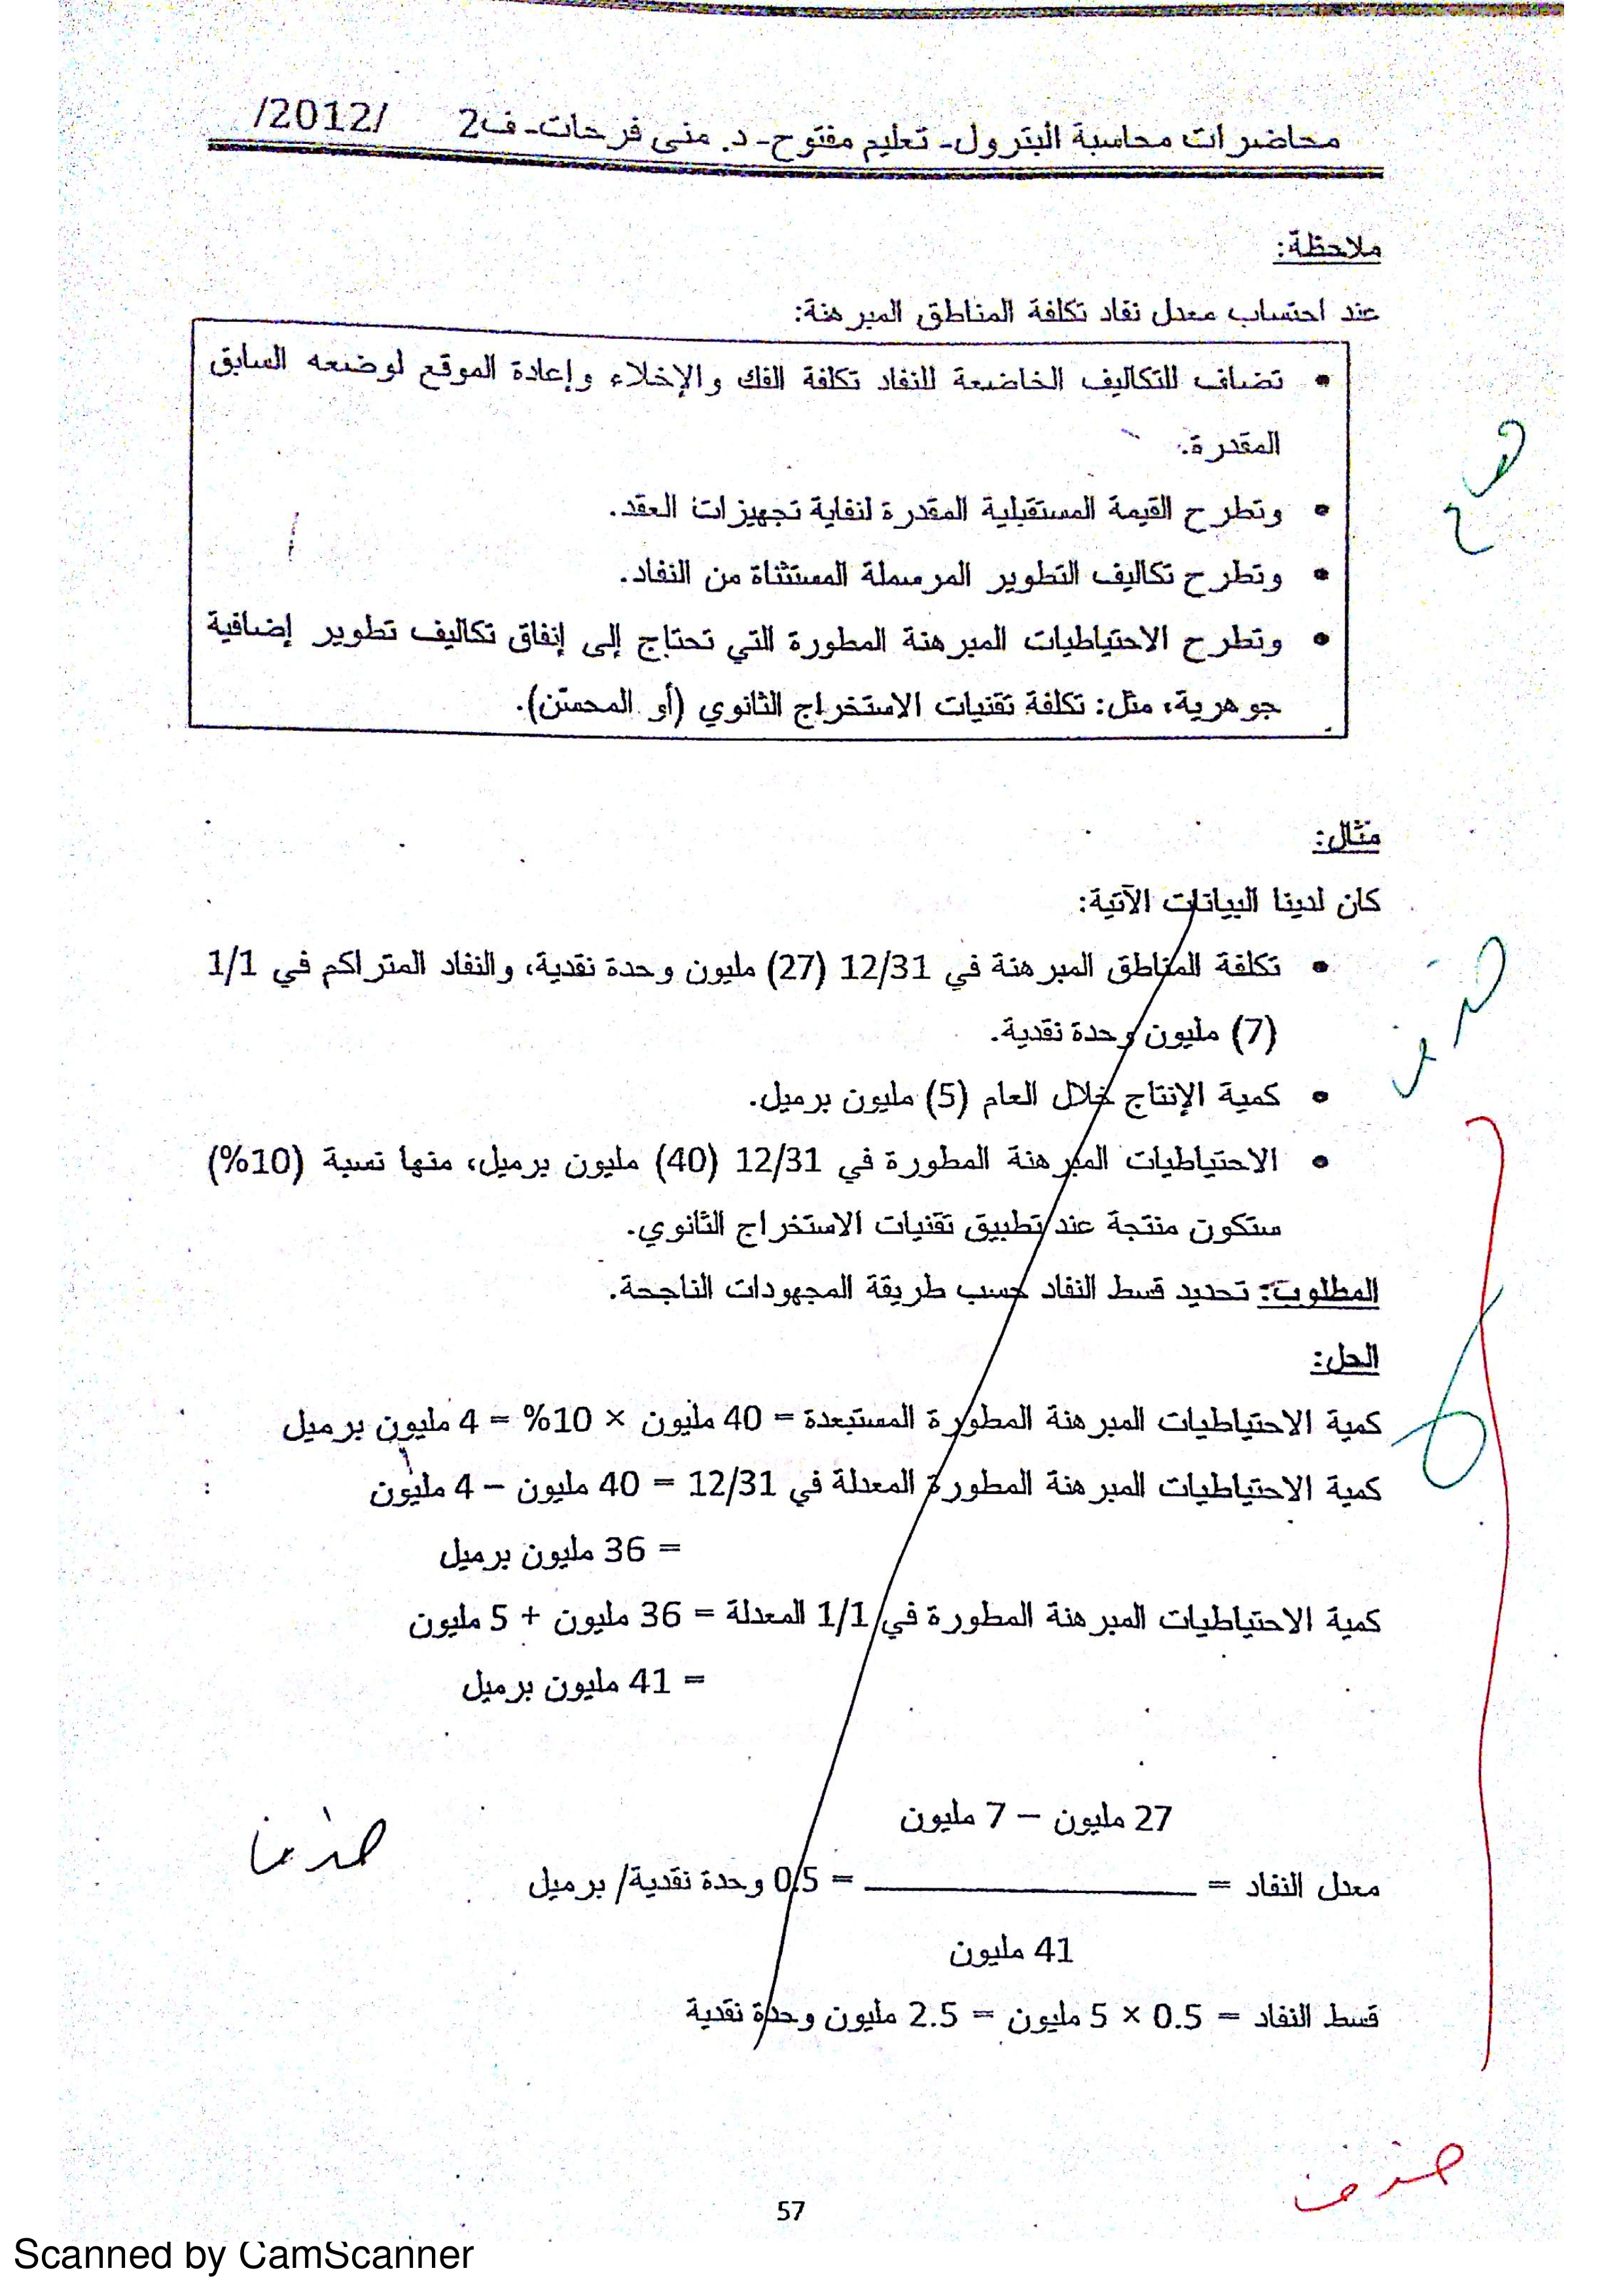 محاضرات محاسبة البترول- تعليم مفتوح- د. منى فرحات- ف2 /2012/
ملاحظة:
عند احتساب معدل نفاد تكلفة المناطق المبرهنة:
• تضاف للتكاليف الخاضعة للنفاد تكلفة الفك والإخلاء وإعادة الموقع لوضعه السابق
المقدرة.
• وتطرح القيمة المستقبلية المقدرة لنفاية تجهيزات العقد.
• وتطرح تكاليف التطوير المرسملة المستثناة من النفاد.
• وتطرح الاحتياطيات المبرهنة المطورة التي تحتاج إلى إنفاق تكاليف تطوير إضافية
جوهرية، مثل: تكلفة تقنيات الاستخراج الثانوي (أو المحسّن).
مثال:
كان لدينا البيانات الآتية:
• تكلفة المناطق المبرهنة في 12/31 (27) مليون وحدة نقدية، والنفاد المتراكم في 1/1
(7) مليون وحدة نقدية.
• كمية الإنتاج خلال العام (5) مليون برميل.
• الاحتياطيات المبرهنة المطورة في 12/31 (40) مليون برميل، منها نسبة (10%)
ستكون منتجة عند تطبيق تقنيات الاستخراج الثانوي.
المطلوب: تحديد قسط النفاد حسب طريقة المجهودات الناجحة.
الحل:
كمية الاحتياطيات المبرهنة المطورة المستبعدة = 40 مليون × 10% = 4 مليون برميل
كمية الاحتياطيات المبرهنة المطورة المعدلة في 12/31 = 40 مليون – 4 مليون
= 36 مليون برميل
كمية الاحتياطيات المبرهنة المطورة في 1/1 المعدلة = 36 مليون + 5 مليون
= 41 مليون برميل
27 مليون – 7 مليون
معدل النفاد = ـــــــــــــــــ = 0.5 وحدة نقدية/ برميل
41 مليون
قسط النفاد = 0.5 × 5 مليون = 2.5 مليون وحدة نقدية
حذف
حذف
57
Scanned by CamScanner